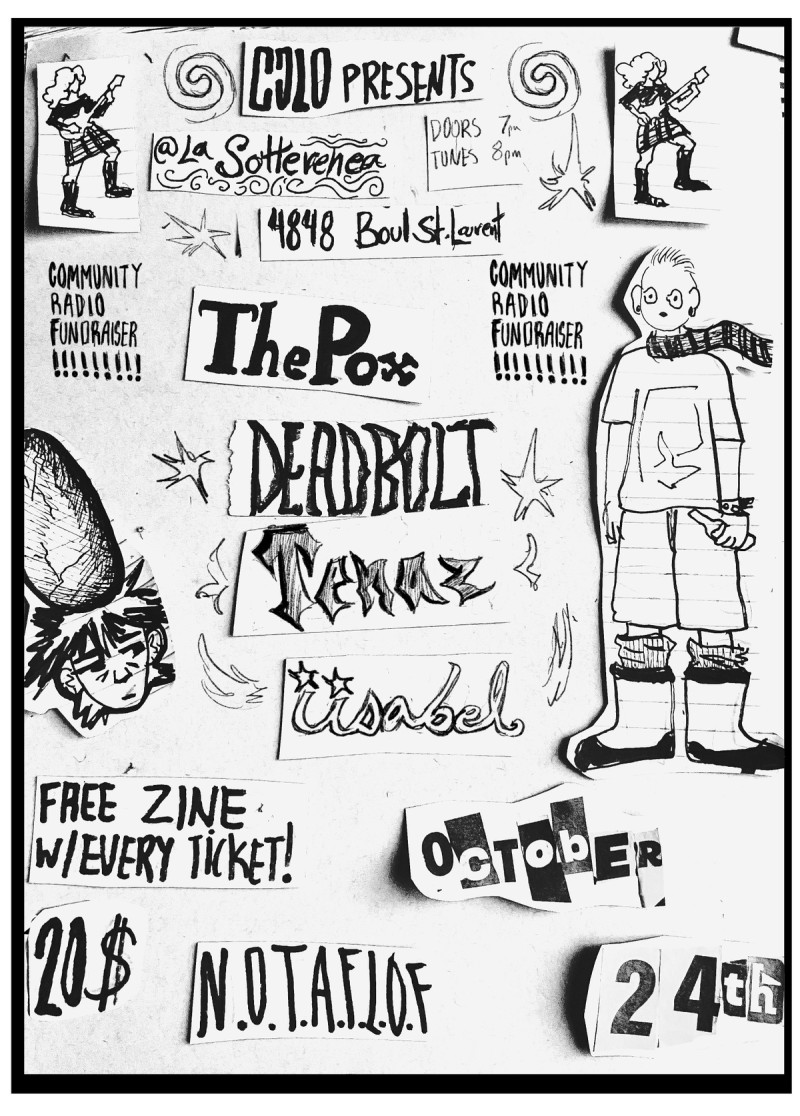 COLO PRESENTS
@La Sotterenea
DOORS 7pm
TUNES 8pm
4848 Boul St. Laurent
COMMUNITY
RADIO
FUNDRAISER
!!!!!!!!!
COMMUNITY
RADIO
FUNDRAISER
!!!!!!!!!
The Pox
DEADBOLT
Tenaz
üisabel
FREE ZINE
W/EVERY TICKET!
OCTOBER
20$
N.O.T.A.F.L.O.F
24th